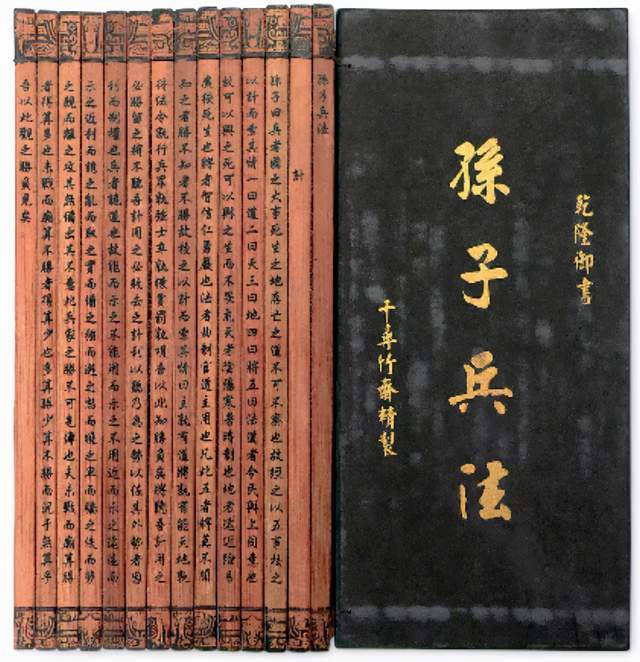 乾隆御書
孫子兵法
千尋竹齋精製
孫子兵法
計
孫子曰兵者國之大事死生之地存亡之道不可不察也故經之以五事校之
以計而索其情一曰道二曰天三曰地四曰將五曰法道者令民與上同意也
故可以與之死可以與之生而不畏危天者陰陽寒暑時制也地者遠近險易
廣狹死生也將者智信仁勇嚴也法者曲制官道主用也凡此五者將莫不聞
知之者勝不知者不勝故校之以計而索其情曰主孰有道將孰有能天地孰
得法令孰行兵眾孰強士卒孰練賞罰孰明吾以此知勝負矣將聽吾計用之
必勝留之將不聽吾計用之必敗去之計利以聽乃為之勢以佐其外勢者因
利而制權也兵者詭道也故能而示之不能用而示之不用近而示之遠遠而
示之近利而誘之亂而取之實而備之強而避之怒而撓之卑而驕之佚而勞
之親而離之攻其無備出其不意此兵家之勝不可先傳也夫未戰而廟算勝
者得算多也未戰而廟算不勝者得算少也多算勝少算不勝而況于無算乎
吾以此觀之勝負見矣